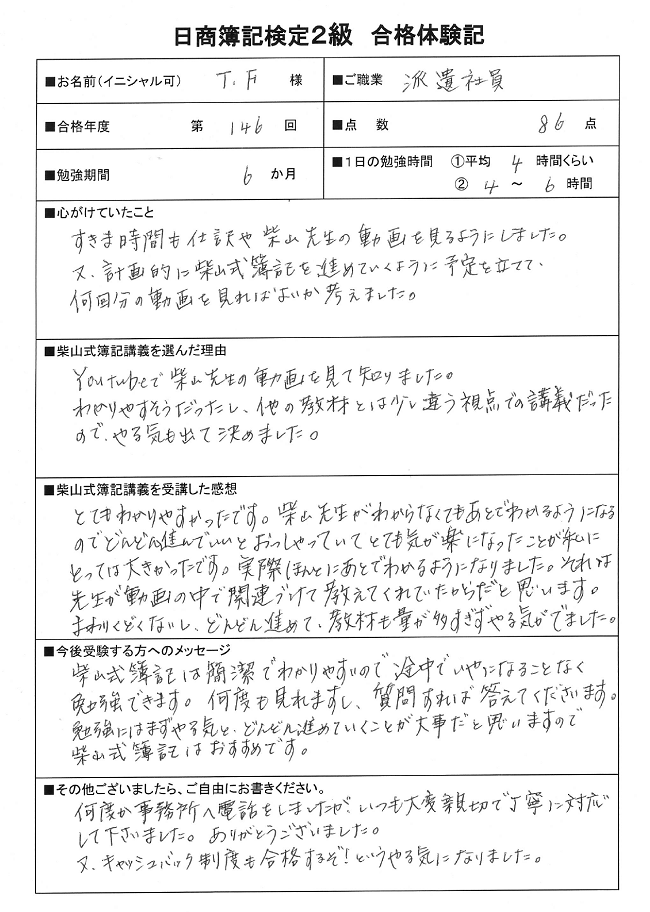 日商簿記検定2級 合格体験記
■お名前(イニシャル可) T.F 様
■ご職業 派遣社員
■合格年度 第 146 回
■点 数 86 点
■勉強期間 6 か月
■1日の勉強時間 ①平均 4 時間くらい
② 4 ～ 6 時間
■心がけていたこと
すきま時間も仕訳や柴山先生の動画を見るようにしました。
又、計画的に柴山式簿記を進めていくように予定を立てて、
何回分の動画を見ればよいか考えました。
■柴山式簿記講義を選んだ理由
Youtubeで柴山先生の動画を見て知りました。
わかりやすそうだったし、他の教材とは少し違う視点での講義だった
ので、やる気も出て決めました。
■柴山式簿記講義を受講した感想
とてもわかりやすかったです。柴山先生がわからなくてもあとでわかるようになる
のでどんどん進んでいいとおっしゃっていてとても気が楽になったことが私に
とっては大きかったです。実際ほんとにあとでわかるようになりました。それは
先生が動画の中で関連づけて教えてくれていたからだと思います。
まわりくどくないし、どんどん進めて、教材も量が多すぎずやる気がでました。
■今後受験する方へのメッセージ
柴山式簿記は簡潔でわかりやすいので途中でいやになることなく
勉強できます。何度も見れますし、質問すれば答えてくださいます。
勉強にはまずやる気と、どんどん進めていくことが大事だと思いますので
柴山式簿記はおすすめです。
■その他ございましたら、ご自由にお書きください。
何度か事務所へ電話をしましたが、いつも大変親切で丁寧に対応
して下さいました。ありがとうございました。
又、キャッシュバック制度も合格するぞ!というやる気になりました。